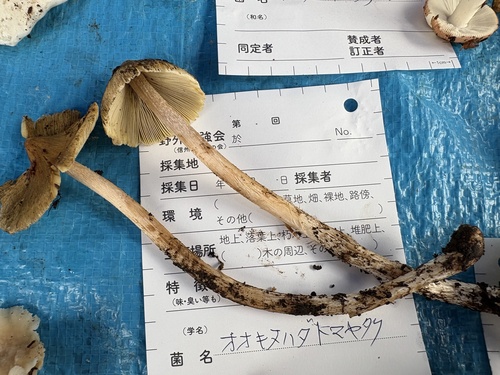 (和名)
同定者
賛成者
訂正者
1cm
第 . 回
強会
(信州 の会)
於
No.
採集地
採集日 年 ・日 採集者
環 境 草地、畑、裸地、路傍、
その他( )
場所 地上、落葉上、朽 上、堆肥上、
)木の周辺、その
特
(味・臭い等も)
(学名)
菌 名 オオキヌハダトマヤタケ